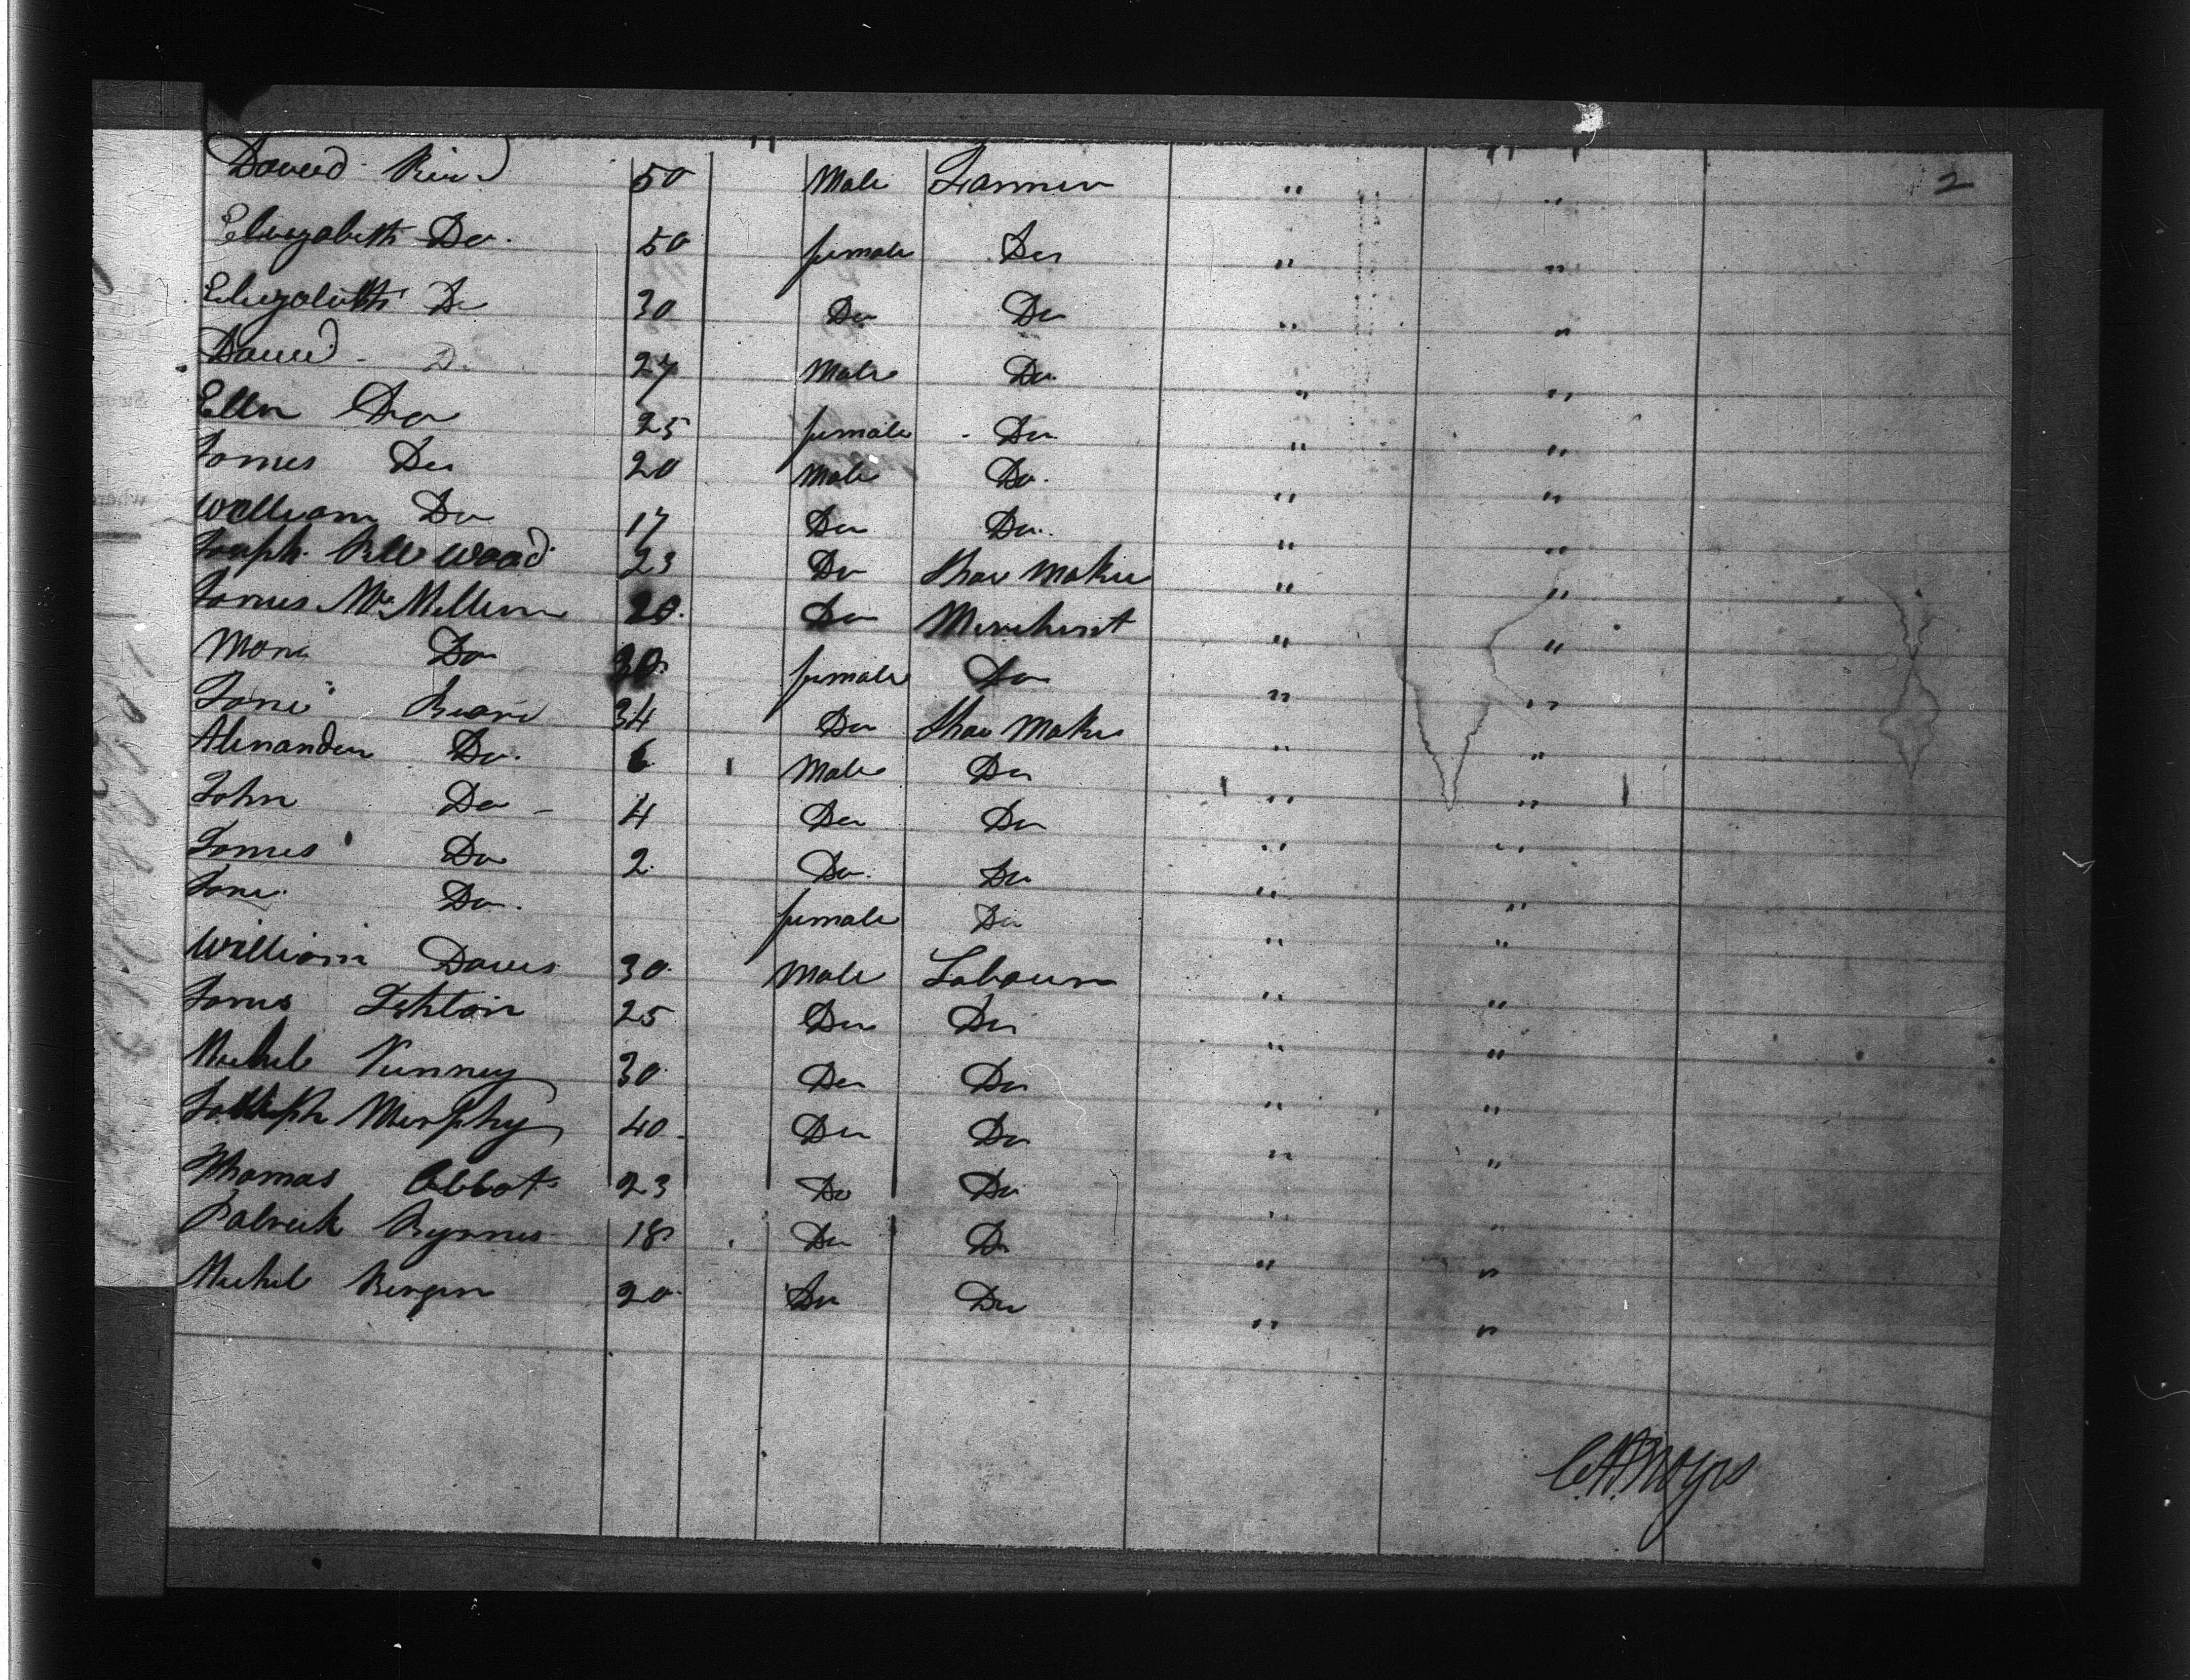 2
David 50 Male Farmer " "
Elizabeth Do. 50 female Do " "
Elizabeth Do 30 Do Do " "
David Do. 27 Male Do. " "
Ellen Do 25 female Do " "
James Do 20 Male Do. " "
William Do 17 Do Do. " "
Joseph Wood 23 Do Shoe Maker " "
James McMillen 20. Do Merchent " "
Do 30 female Do " "
Jane 34 Do Shoe Maker " "
Alexander Do. 6 Male Do " "
John Do 4 Do Do " "
James Do 2. Do. Do " "
Jane Do. female Do " "
William Davis 30 Male Labourer " "
James 25 Do Do " "
Michel Kinney 30 Do Do " "
Joseph Murphy 40 Do Do " "
Thomas Abbot 23 Do Do " "
Patrick Byrnes 18 Do Do " "
Michel Bergen 20 Do Do " "